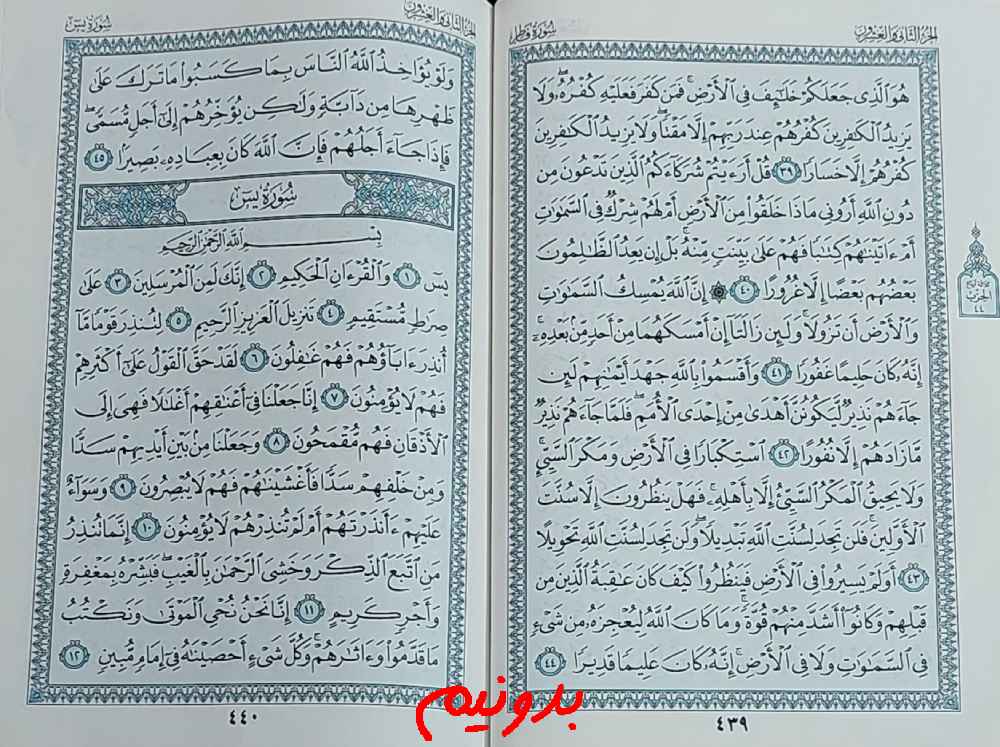 الجزء الثاني والعشرون
سورة فاطر
هُوَ ٱلَّذِى جَعَلَكُمْ خَلَٰٓئِفَ فِى ٱلْأَرْضِ ۚ فَمَن كَفَرَ فَعَلَيْهِ كُفْرُهُۥ ۖ وَلَا
يَزِيدُ ٱلْكَٰفِرِينَ كُفْرُهُمْ عِندَ رَبِّهِمْ إِلَّا مَقْتًا ۖ وَلَا يَزِيدُ ٱلْكَٰفِرِينَ
كُفْرُهُمْ إِلَّا خَسَارًا ٣٩ قُلْ أَرَءَيْتُمْ شُرَكَآءَكُمُ ٱلَّذِينَ تَدْعُونَ مِن
دُونِ ٱللَّهِ أَرُونِى مَاذَا خَلَقُوا۟ مِنَ ٱلْأَرْضِ أَمْ لَهُمْ شِرْكٌ فِى ٱلسَّمَٰوَٰتِ
أَمْ ءَاتَيْنَٰهُمْ كِتَٰبًا فَهُمْ عَلَىٰ بَيِّنَتٍ مِّنْهُ ۚ بَلْ إِن يَعِدُ ٱلظَّٰلِمُونَ
بَعْضُهُم بَعْضًا إِلَّا غُرُورًا ٤٠ ۞ إِنَّ ٱللَّهَ يُمْسِكُ ٱلسَّمَٰوَٰتِ
وَٱلْأَرْضَ أَن تَزُولَا ۚ وَلَئِن زَالَتَآ إِنْ أَمْسَكَهُمَا مِنْ أَحَدٍ مِّنۢ بَعْدِهِۦٓ ۚ
إِنَّهُۥ كَانَ حَلِيمًا غَفُورًا ٤١ وَأَقْسَمُوا۟ بِٱللَّهِ جَهْدَ أَيْمَٰنِهِمْ لَئِن
جَآءَهُمْ نَذِيرٌ لَّيَكُونُنَّ أَهْدَىٰ مِنْ إِحْدَى ٱلْأُمَمِ ۖ فَلَمَّا جَآءَهُمْ نَذِيرٌ
مَّا زَادَهُمْ إِلَّا نُفُورًا ٤٢ ٱسْتِكْبَارًا فِى ٱلْأَرْضِ وَمَكْرَ ٱلسَّيِّئِ ۚ
وَلَا يَحِيقُ ٱلْمَكْرُ ٱلسَّيِّئُ إِلَّا بِأَهْلِهِۦ ۚ فَهَلْ يَنظُرُونَ إِلَّا سُنَّتَ
ٱلْأَوَّلِينَ ۚ فَلَن تَجِدَ لِسُنَّتِ ٱللَّهِ تَبْدِيلًا ۖ وَلَن تَجِدَ لِسُنَّتِ ٱللَّهِ تَحْوِيلًا
٤٣ أَوَلَمْ يَسِيرُوا۟ فِى ٱلْأَرْضِ فَيَنظُرُوا۟ كَيْفَ كَانَ عَٰقِبَةُ ٱلَّذِينَ مِن
قَبْلِهِمْ وَكَانُوٓا۟ أَشَدَّ مِنْهُمْ قُوَّةً ۚ وَمَا كَانَ ٱللَّهُ لِيُعْجِزَهُۥ مِن شَىْءٍ
فِى ٱلسَّمَٰوَٰتِ وَلَا فِى ٱلْأَرْضِ ۚ إِنَّهُۥ كَانَ عَلِيمًا قَدِيرًا ٤٤
٤٣٩
الحزب
٤٤
الجزء الثاني والعشرون
سورة يس
وَلَوْ يُؤَاخِذُ ٱللَّهُ ٱلنَّاسَ بِمَا كَسَبُوا۟ مَا تَرَكَ عَلَىٰ
ظَهْرِهَا مِن دَآبَّةٍ وَلَٰكِن يُؤَخِّرُهُمْ إِلَىٰٓ أَجَلٍ مُّسَمًّى ۖ
فَإِذَا جَآءَ أَجَلُهُمْ فَإِنَّ ٱللَّهَ كَانَ بِعِبَادِهِۦ بَصِيرًۢا ٤٥
سُورَةُ يسٓ
بِسْمِ ٱللَّهِ ٱلرَّحْمَٰنِ ٱلرَّحِيمِ
يسٓ ١ وَٱلْقُرْءَانِ ٱلْحَكِيمِ ٢ إِنَّكَ لَمِنَ ٱلْمُرْسَلِينَ ٣ عَلَىٰ
صِرَٰطٍ مُّسْتَقِيمٍ ٤ تَنزِيلَ ٱلْعَزِيزِ ٱلرَّحِيمِ ٥ لِتُنذِرَ قَوْمًا مَّآ
أُنذِرَ ءَابَآؤُهُمْ فَهُمْ غَٰفِلُونَ ٦ لَقَدْ حَقَّ ٱلْقَوْلُ عَلَىٰٓ أَكْثَرِهِمْ
فَهُمْ لَا يُؤْمِنُونَ ٧ إِنَّا جَعَلْنَا فِىٓ أَعْنَٰقِهِمْ أَغْلَٰلًا فَهِىَ إِلَى
ٱلْأَذْقَانِ فَهُم مُّقْمَحُونَ ٨ وَجَعَلْنَا مِنۢ بَيْنِ أَيْدِيهِمْ سَدًّا
وَمِنْ خَلْفِهِمْ سَدًّا فَأَغْشَيْنَٰهُمْ فَهُمْ لَا يُبْصِرُونَ ٩ وَسَوَآءٌ
عَلَيْهِمْ ءَأَنذَرْتَهُمْ أَمْ لَمْ تُنذِرْهُمْ لَا يُؤْمِنُونَ ١٠ إِنَّمَا تُنذِرُ
مَنِ ٱتَّبَعَ ٱلذِّكْرَ وَخَشِىَ ٱلرَّحْمَٰنَ بِٱلْغَيْبِ ۖ فَبَشِّرْهُ بِمَغْفِرَةٍ
وَأَجْرٍ كَرِيمٍ ١١ إِنَّا نَحْنُ نُحْىِ ٱلْمَوْتَىٰ وَنَكْتُبُ
مَا قَدَّمُوا۟ وَءَاثَٰرَهُمْ ۚ وَكُلَّ شَىْءٍ أَحْصَيْنَٰهُ فِىٓ إِمَامٍ مُّبِينٍ ١٢
٤٤٠
بدونیم